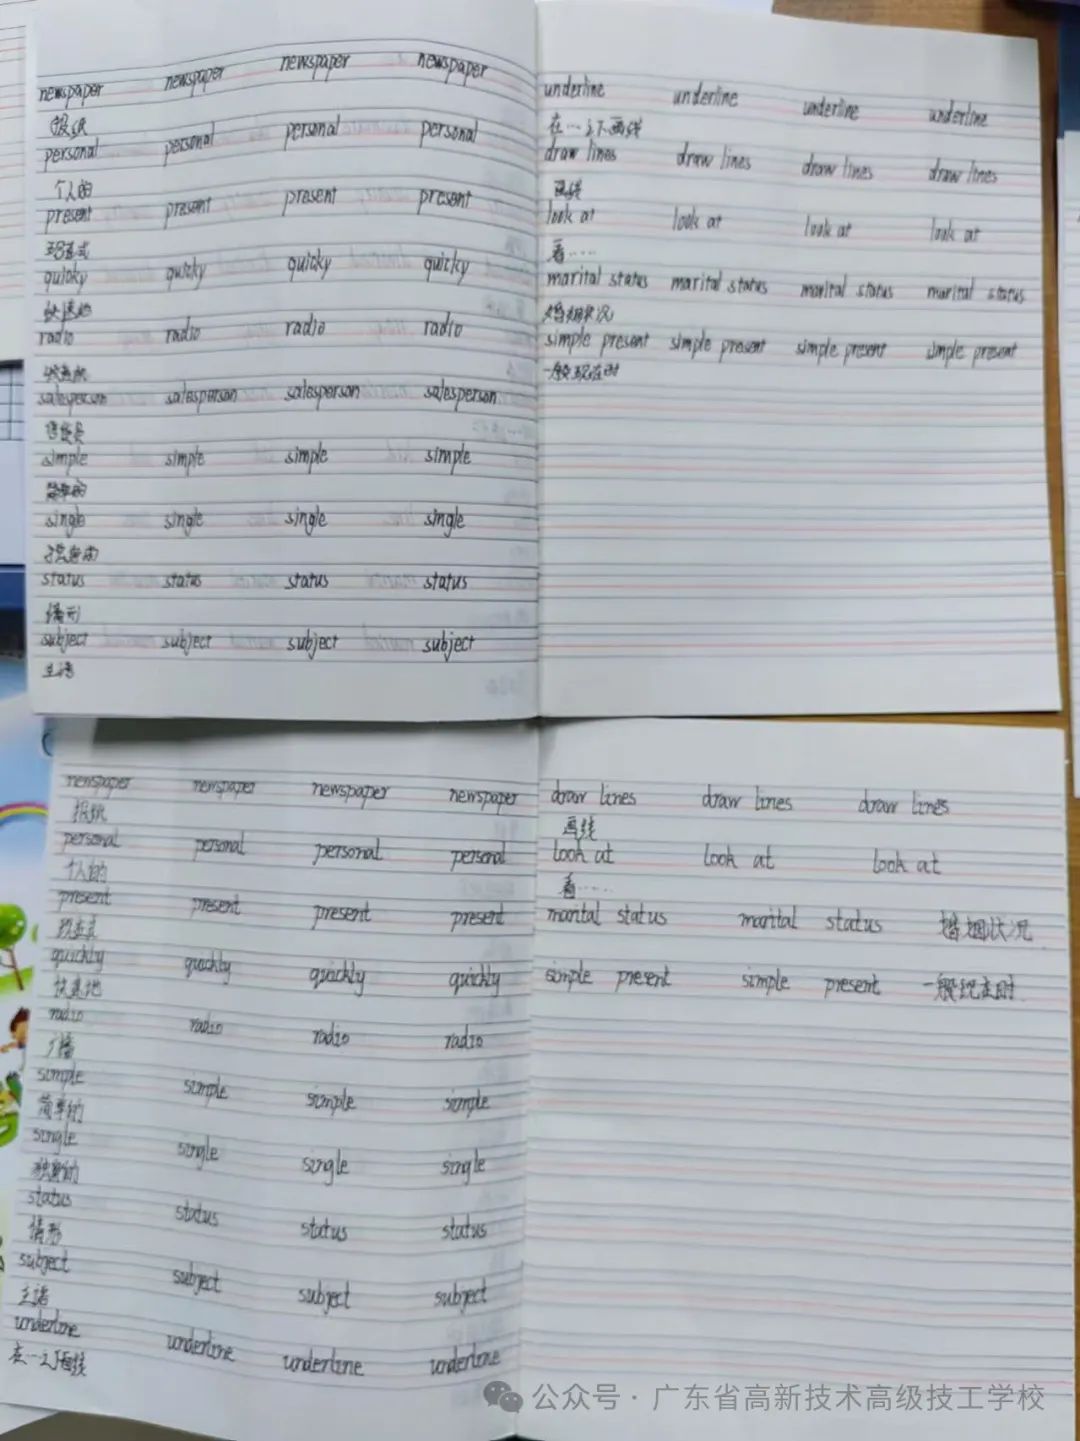 newspaper newspaper newspaper newspaper
报纸
personal personal personal personal
个人的
present present present present
现在式
quicky quicky quicky quicky
快速地
radio radio radio radio
收音机
salesperson salesperson salesperson salesperson
售货员
simple simple simple simple
简单的
single single single single
status status status status
情形
subject subject subject subject
主语
underline underline underline underline
在…之下画线
draw lines draw lines draw lines draw lines
画线
look at look at look at look at
看……
marital status marital status marital status marital status
婚姻状况
simple present simple present simple present simple present
一般现在时
newspaper newspaper newspaper newspaper
报纸
personal personal personal personal
个人的
present present present present
现在式
quickly quickly quickly quickly
快速地
radio radio radio radio
广播
simple simple simple simple
简单的
single single single single
独身的
status status status status
情形
subject subject subject subject
主语
underline underline underline underline
在…之下画线
draw lines draw lines draw lines
画线
look at look at look at
看……
marital status marital status 婚姻状况
simple present simple present 一般现在时
公众号 · 广东省高新技术高级技工学校